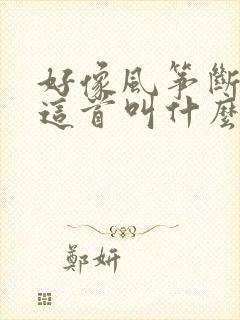 好像風筝斷
這首叫什麼
鄭妍